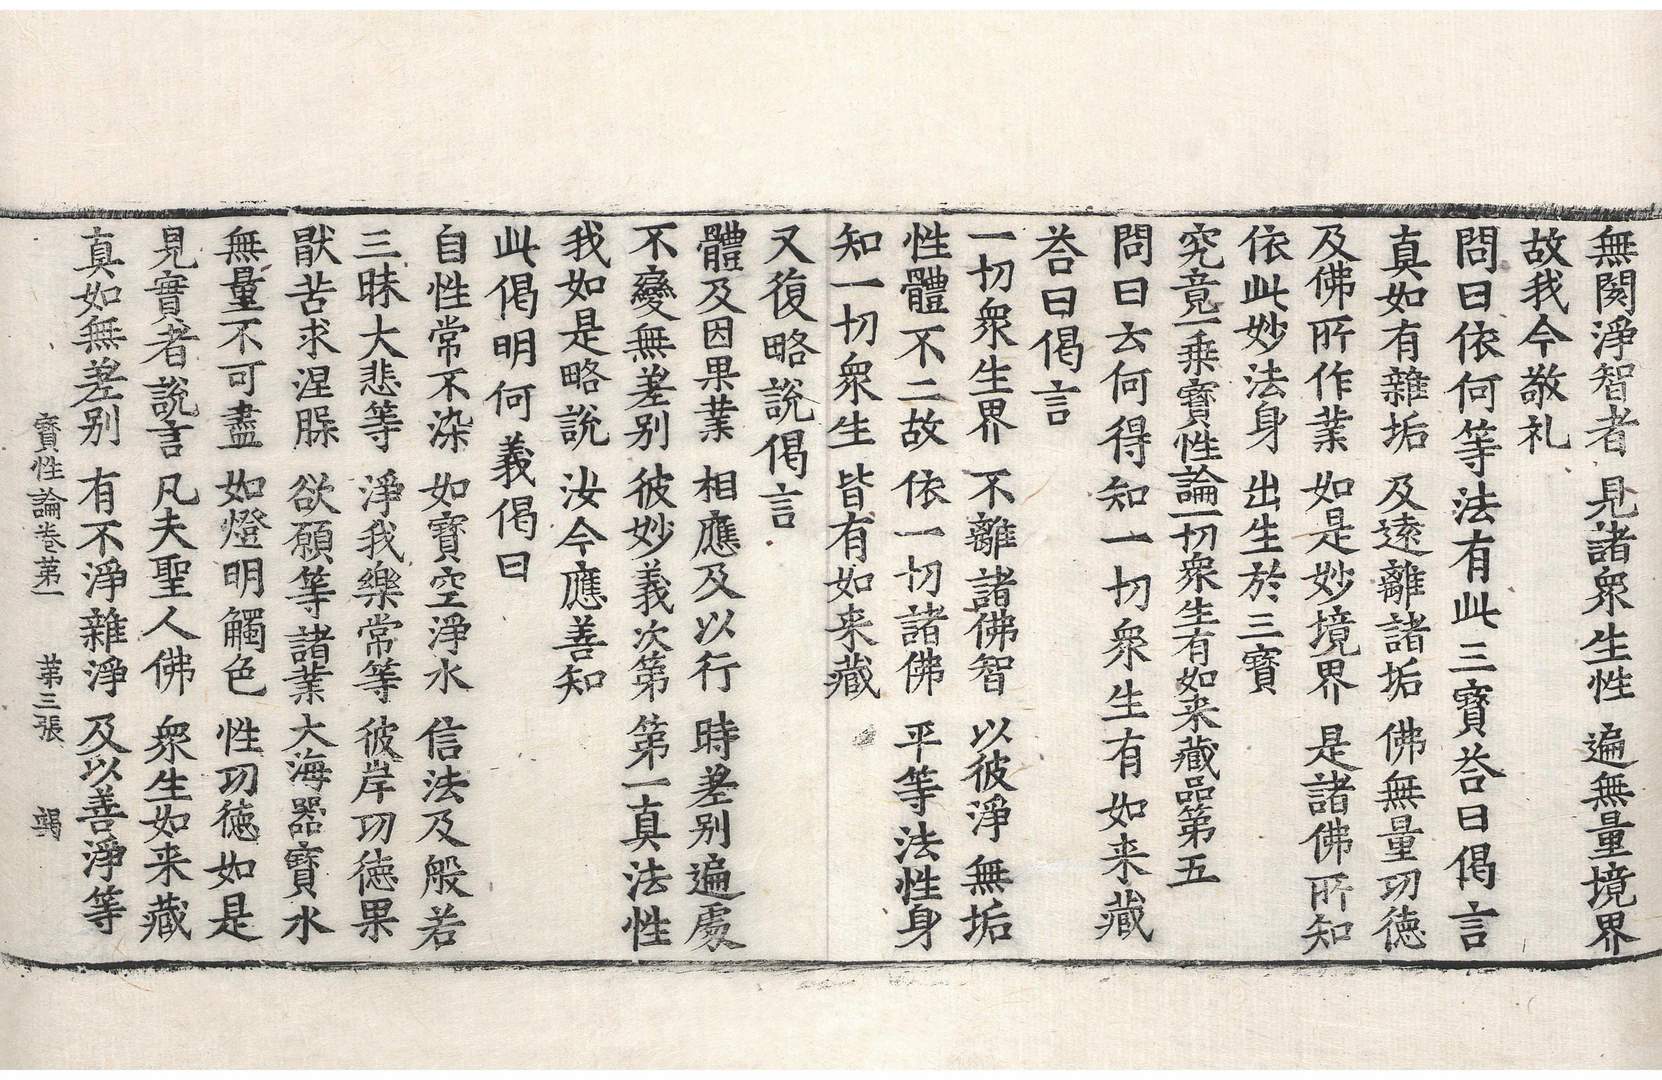 無閡淨智者 見諸衆生性 遍無量境界
故我今敬礼
問曰依何等法有此三寳荅曰偈言
真如有雜垢 及遠離諸垢 佛無量功德
及佛所作業 如是妙境界 是諸佛所知
依此妙法身 出生於三寳
究竟一乗寳性論一切衆生有如来藏品第五
問曰云何得知一切衆生有如来藏
荅曰偈言
一切衆生界 不離諸佛智 以彼淨無垢
性體不二故 依一切諸佛 平等法性身
知一切衆生 皆有如来藏
又復略說偈言
體及因果業 相應及以行 時差別遍處
不變無差別 彼妙義次第 第一真法性
我如是略說 汝今應善知
此偈明何義偈曰
自性常不染 如寳空淨水 信法及般若
三昧大悲等 淨我樂常等 彼岸功德果
猒苦求涅槃 欲願等諸業 大海器寳水
無量不可盡 如燈明觸色 性功徳如是
見實者說言 凡夫聖人佛 衆生如来藏
真如無差別 有不淨雜淨 及以善淨等
寳性論卷第一 第三張 竭